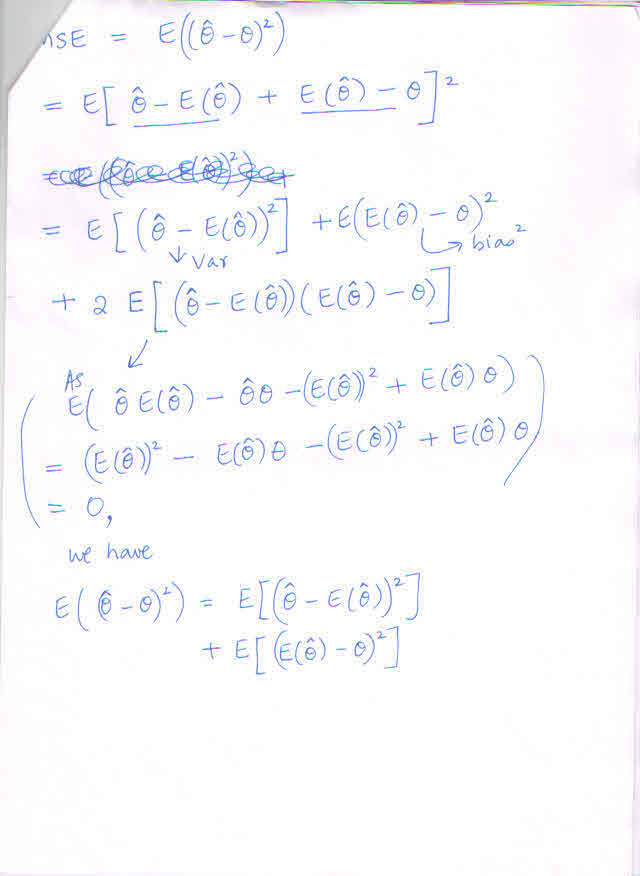 MSE = E((θ̂ - θ)²)
= E[ θ̂ - E(θ̂) + E(θ̂) - θ]²
= E[(θ̂ - E(θ̂))²] + E(E(θ̂) - θ)²
↓ Var → bias²
+ 2 E[(θ̂ - E(θ̂))(E(θ̂) - θ)]
As
E( θ̂ E(θ̂) - θ̂θ - (E(θ̂))² + E(θ̂) θ)
= (E(θ̂))² - E(θ̂)θ - (E(θ̂))² + E(θ̂) θ
= 0,
we have
E((θ̂ - θ)²) = E[(θ̂ - E(θ̂))²]
+ E[(E(θ̂) - θ)²]